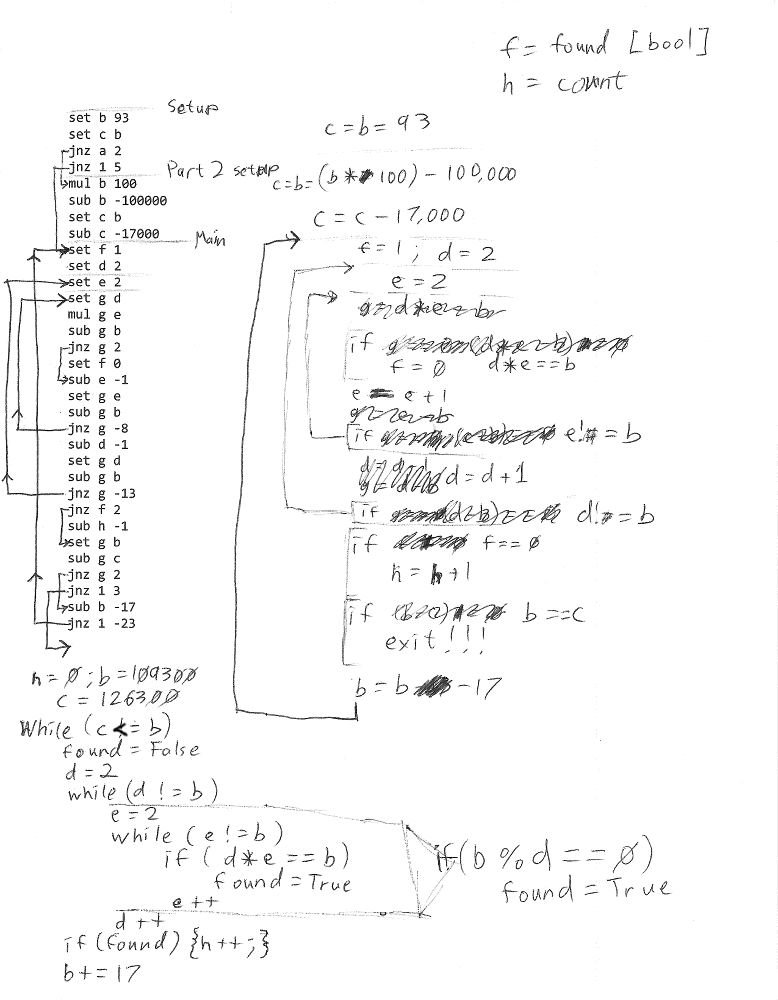 f = found [bool]
h = count
Setup
set b 93
set c b
jnz a 2
jnz 1 5
Part 2 setup
mul b 100
sub b -100000
set c b
sub c -17000
Main
set f 1
set d 2
set e 2
set g d
mul g e
sub g b
jnz g 2
set f 0
sub e -1
set g e
sub g b
jnz g -8
sub d -1
set g d
sub g b
jnz g -13
jnz f 2
sub h -1
set g b
sub g c
jnz g 2
jnz 1 3
sub b -17
jnz 1 -23
c = b = 93
c=b=(b * 100) - 100,000
c = c - 17,000
f = 1 ; d = 2
e = 2
g = d*e - b
if d*e==b
f = 0
e = e + 1
g = e - b
if e != b
d = d + 1
if d != b
if f == 0
h = h + 1
if b == c
exit!!!
b = b - 17
h = 0 ; b = 109300
c = 126300
While (c <= b)
found = False
d = 2
while (d != b)
e = 2
while (e != b)
if (d*e == b)
found = True
e ++
d ++
if (found) {h++;}
b += 17
if (b % d == 0)
found = True